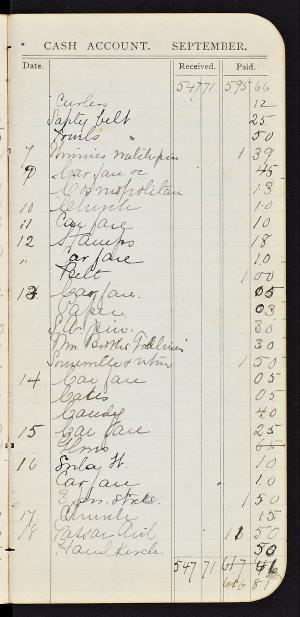 CASH ACCOUNT. SEPTEMBER.
Date. Received. Paid.
547 71 595 66
Curlers 12
Safty belt 25
Towels 50
7 1 39
9 Car fare 45
Cosmopolitan 13
10 Church 10
11 Car fare 10
12 Stamps 18
" Car fare 10
Belt 1 00
13 Car fare. 05
Paper 03
S.A. pin. 30
30
Somerville & return 1 50
14 Car fare 05
Cakes 05
Candy 40
15 Car fare 25
65
16 10
Car fare 10
1 50
17 Church 15
18 Vassar Aid 1 50
Hand Kerch. 50
547 71 617 46
616 81